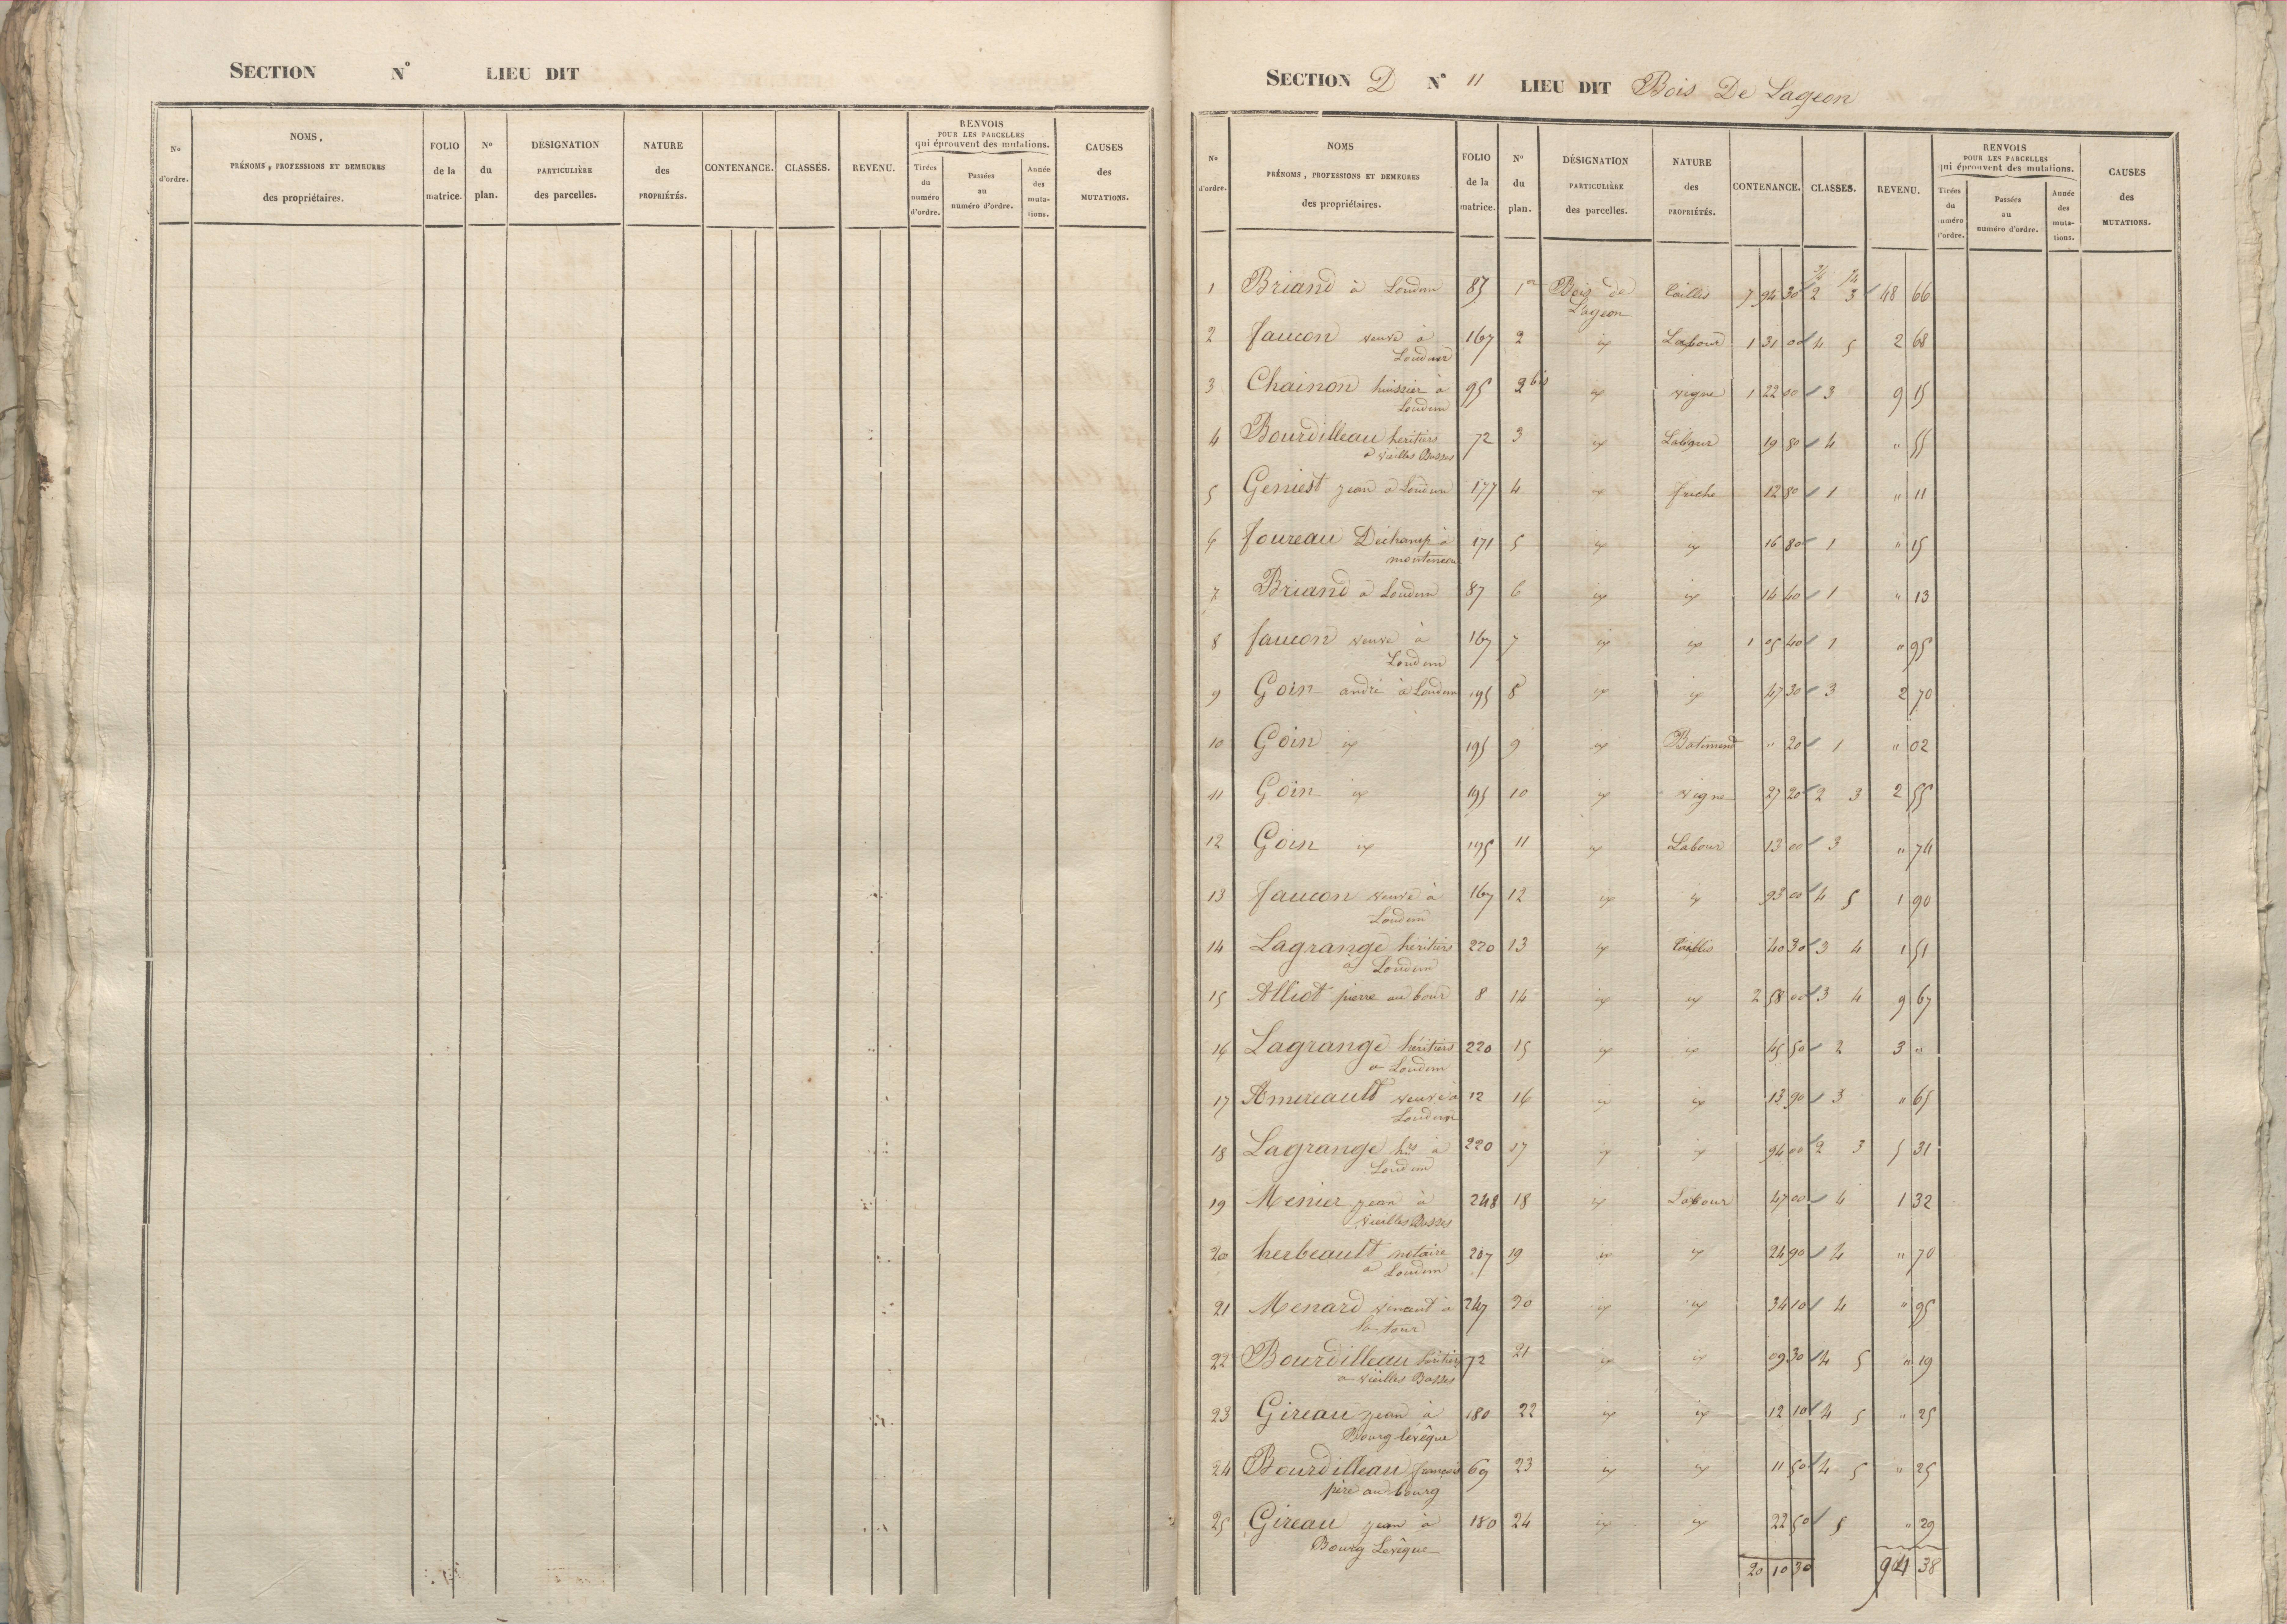 SECTION N° LIEU DIT
N° d'ordre.
NOMS, PRÉNOMS, PROFESSIONS ET DEMEURES des propriétaires.
FOLIO de la matrice.
N° du plan.
DÉSIGNATION PARTICULIÈRE des parcelles.
NATURE des PROPRIÉTÉS.
CONTENANCE.
CLASSES.
REVENU.
RENVOIS POUR LES PARCELLES qui éprouvent des mutations.
Tirées du numéro d'ordre.
Passées au numéro d'ordre.
Année des mutations.
CAUSES des MUTATIONS.
SECTION D N° 11 LIEU DIT Bois De Lageon
N° d'ordre.
NOMS PRÉNOMS, PROFESSIONS ET DEMEURES des propriétaires.
FOLIO de la matrice.
N° du plan.
DÉSIGNATION PARTICULIÈRE des parcelles.
NATURE des PROPRIÉTÉS.
CONTENANCE.
CLASSES.
REVENU.
RENVOIS POUR LES PARCELLES qui éprouvent des mutations.
Tirées du numéro d'ordre.
Passées au numéro d'ordre.
Année des mutations.
CAUSES des MUTATIONS.
1 Briand à Loudun 87 1er Bois de Lageon taillis 7 94 30 2 3 48 66
2 faucon veuve à Loudun 167 2 id Labour 1 31 00 4 5 2 68
3 Chainon huissier à Loudun 95 2 bis id vigne 1 22 00 3 9 15
4 Bourdilleau héritiers à vieilles Basses 72 3 id Labour 19 80 4 " 55
5 Geniest jean à Loudun 177 4 id friche 12 80 1 " 11
6 foureau Dechamp à 171 5 id id 16 80 1 " 15
7 Briand à Loudun 87 6 id id 14 40 1 " 13
8 faucon veuve à Loudun 167 7 id id 1 05 40 1 " 95
9 Goin andré à Loudun 195 8 id id 47 30 3 2 70
10 Goin id 195 9 id Batiment " 20 1 " 02
11 Goin id 195 10 id vigne 27 20 2 3 2 55
12 Goin id 195 11 id Labour 13 00 3 " 74
13 faucon veuve à Loudun 167 12 id id 93 00 4 5 1 90
14 Lagrange héritiers à Loudun 220 13 id taillis 40 30 3 4 1 51
15 Alliot pierre au bourg 8 14 id id 2 58 00 3 4 9 67
16 Lagrange héritiers à Loudun 220 15 id id 45 50 2 3 "
17 Amireault veuve à Loudun 12 16 id id 13 90 3 " 65
18 Lagrange hrs à Loudun 220 17 id id 94 00 2 3 5 31
19 Menier jean à vieilles Basses 248 18 id Labour 47 00 4 1 32
20 herbeault notaire à Loudun 207 19 id id 24 90 4 " 70
21 Menard vincent à la tour 247 20 id id 34 10 4 " 95
22 Bourdilleau héritiers à vieilles Basses 72 21 id id 09 30 4 5 " 19
23 Gireau jean à Bourg lévêque 180 22 id id 12 10 4 5 " 25
24 Bourdilleau françois père au bourg 69 23 id id 11 50 4 5 " 25
25 Gireau jean à Bourg Levêque 180 24 id id 22 50 5 " 29
20 10 30 94 38